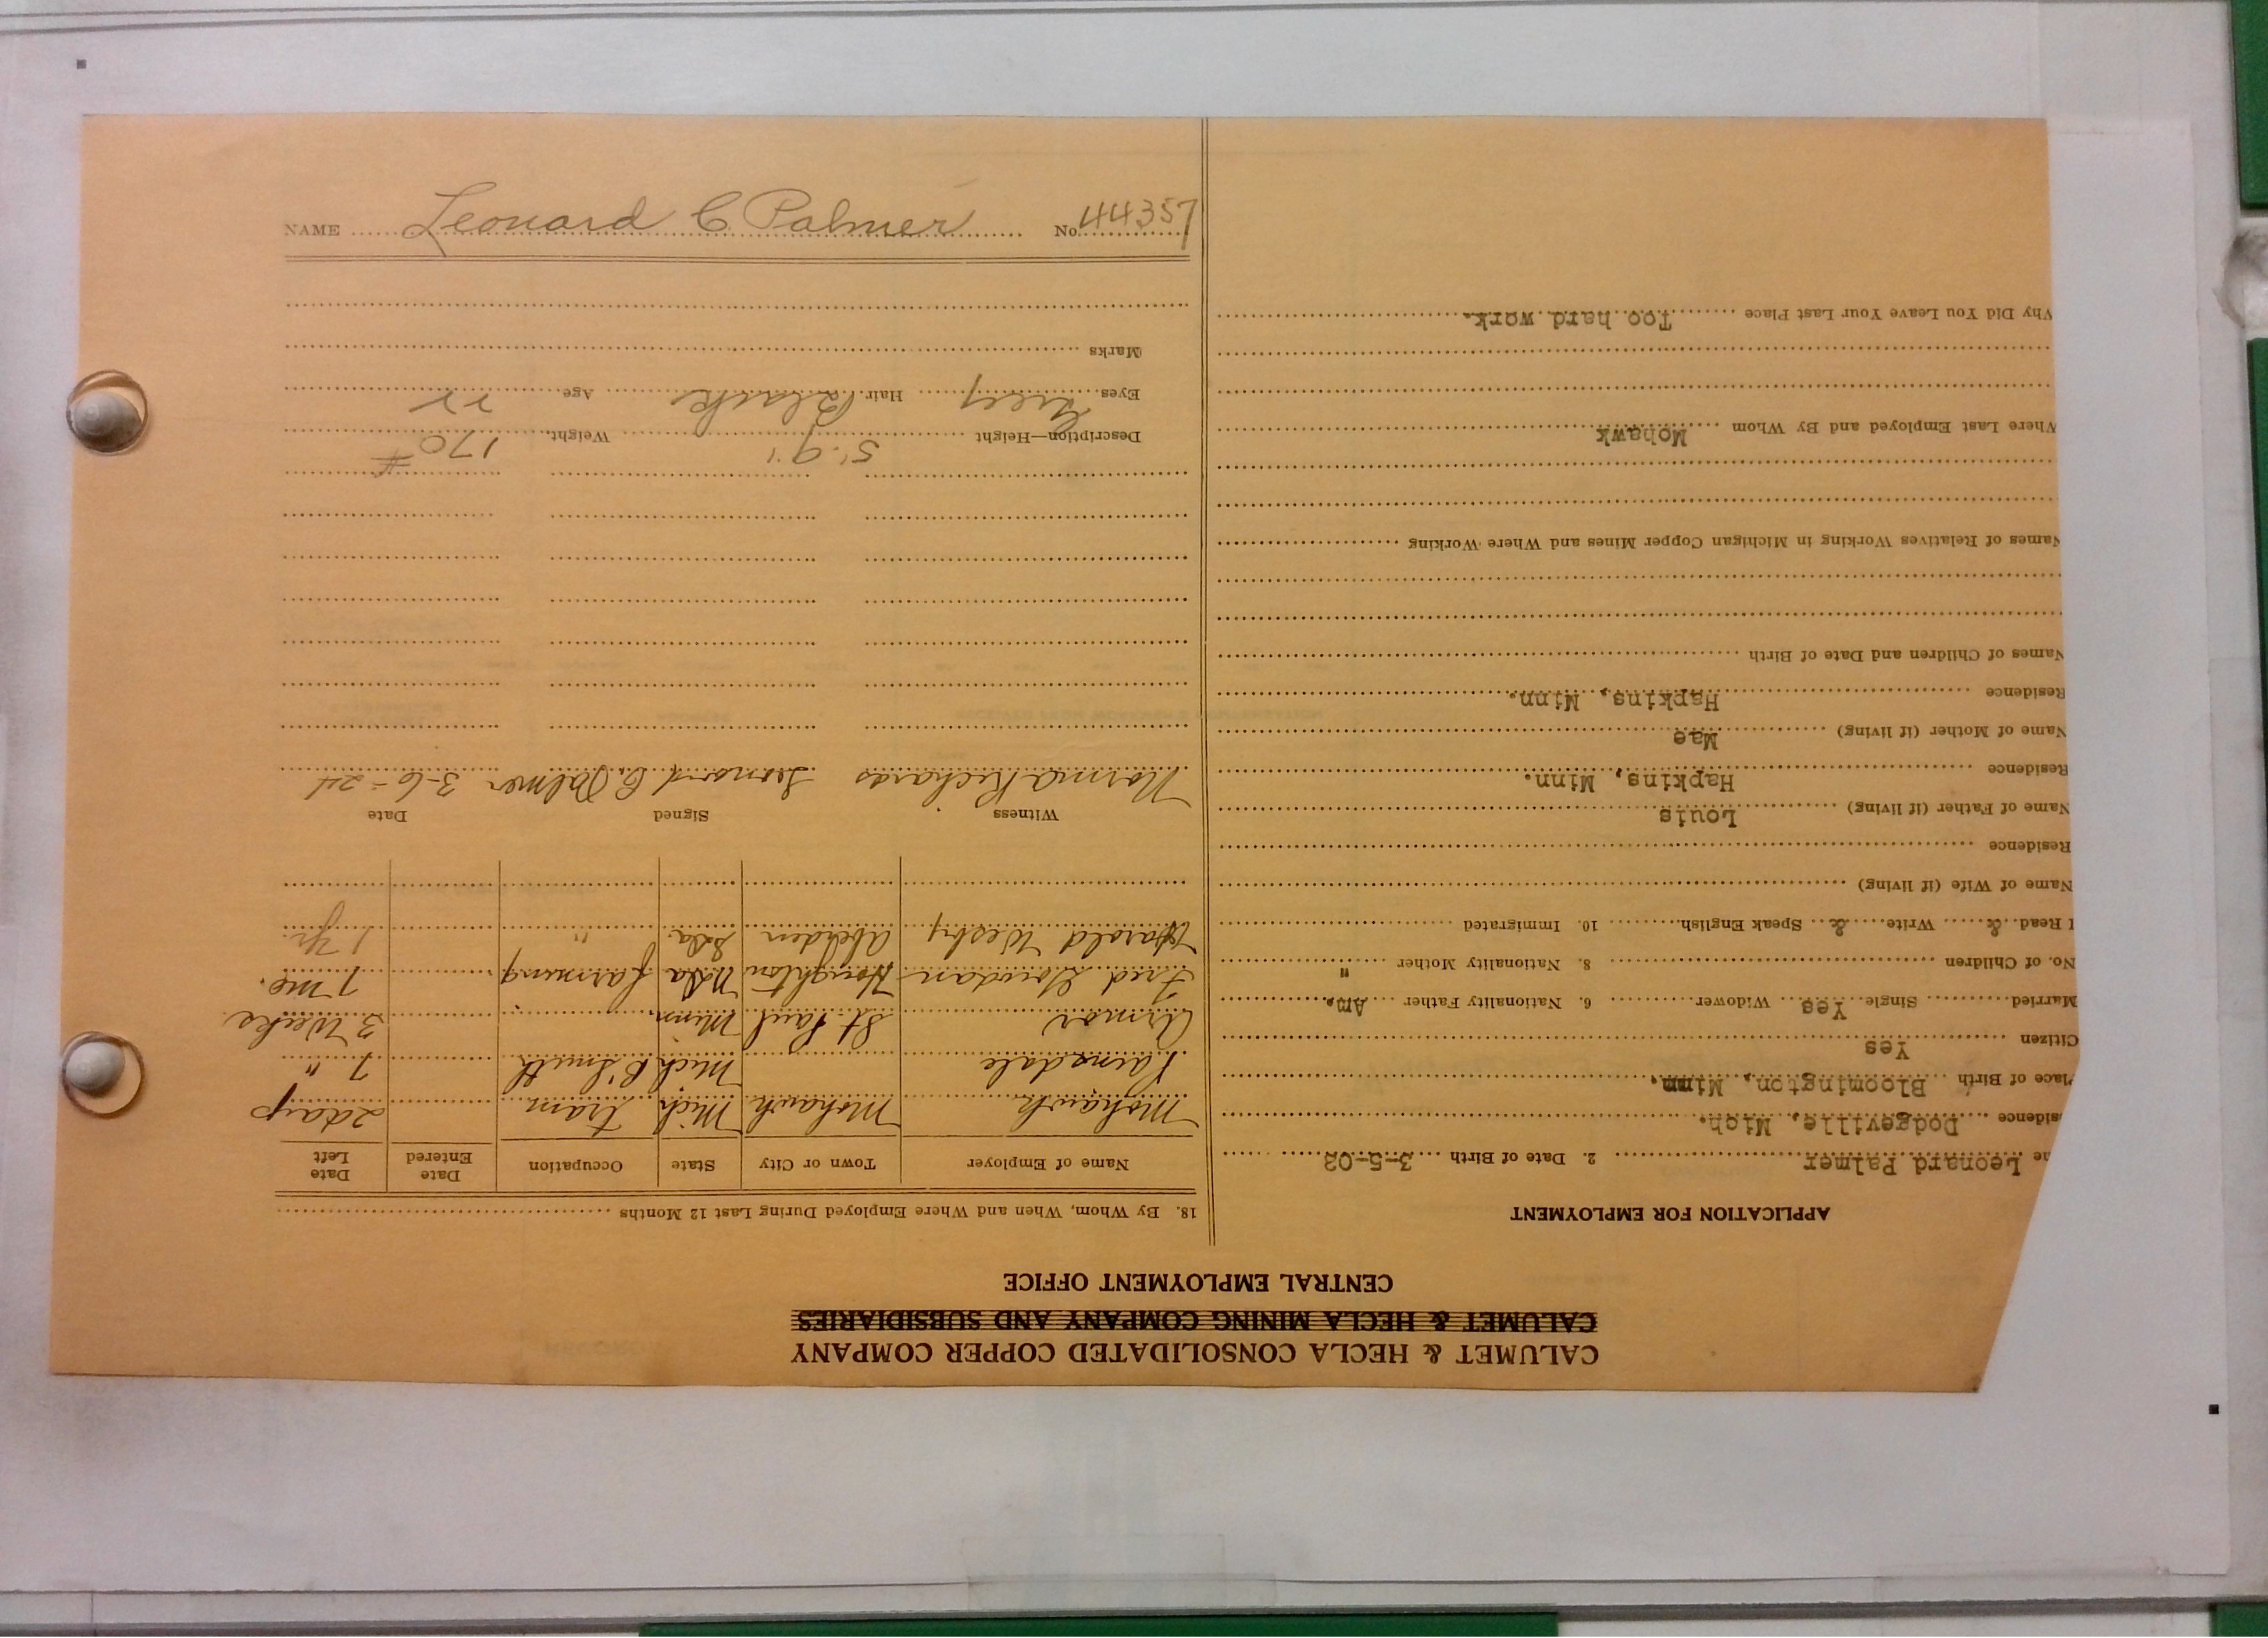 CALUMET & HECLA CONSOLIDATED COPPER COMPANY
CALUMET & HECLA MINING COMPANY AND SUBSIDIARIES
CENTRAL EMPLOYMENT OFFICE
APPLICATION FOR EMPLOYMENT
me Leonard Palmer 2. Date of Birth 3-5-02
sidence Dodgeville, Mich.
Place of Birth Bloomington, Minn.
Citizen Yes
Married Single Yes Widower 6. Nationality Father Am.
No. of Children 8. Nationality Mother "
I Read & Write & Speak English 10. Immigrated
Name of Wife (if living)
Residence
Name of Father (if living) Louis
Residence Hapkins, Minn.
Name of Mother (if living) Mae
Residence Hapkins, Minn.
Names of Children and Date of Birth
Names of Relatives Working in Michigan Copper Mines and Where Working
Where Last Employed and By Whom Mohawk
Why Did You Leave Your Last Place Too hard work.
18. By Whom, When and Where Employed During Last 12 Months
Name of Employer Town or City State Occupation Date Entered Date Left
Mohawk Mohawk Mich tram 2 days
Mich B'Smith 7 "
Armor St. Paul Minn. 3 Weeks
Fred Houghton farming 7 mo.
Harold Wesby S.Da. " 1 Yr.
Witness Signed Date
Norma Richards Leonard C. Palmer 3-6-24
Description—Height 5' 9" Weight 170 #
Eyes Grey Hair Black Age 22
Marks
NAME Leonard C Palmer No. 44357